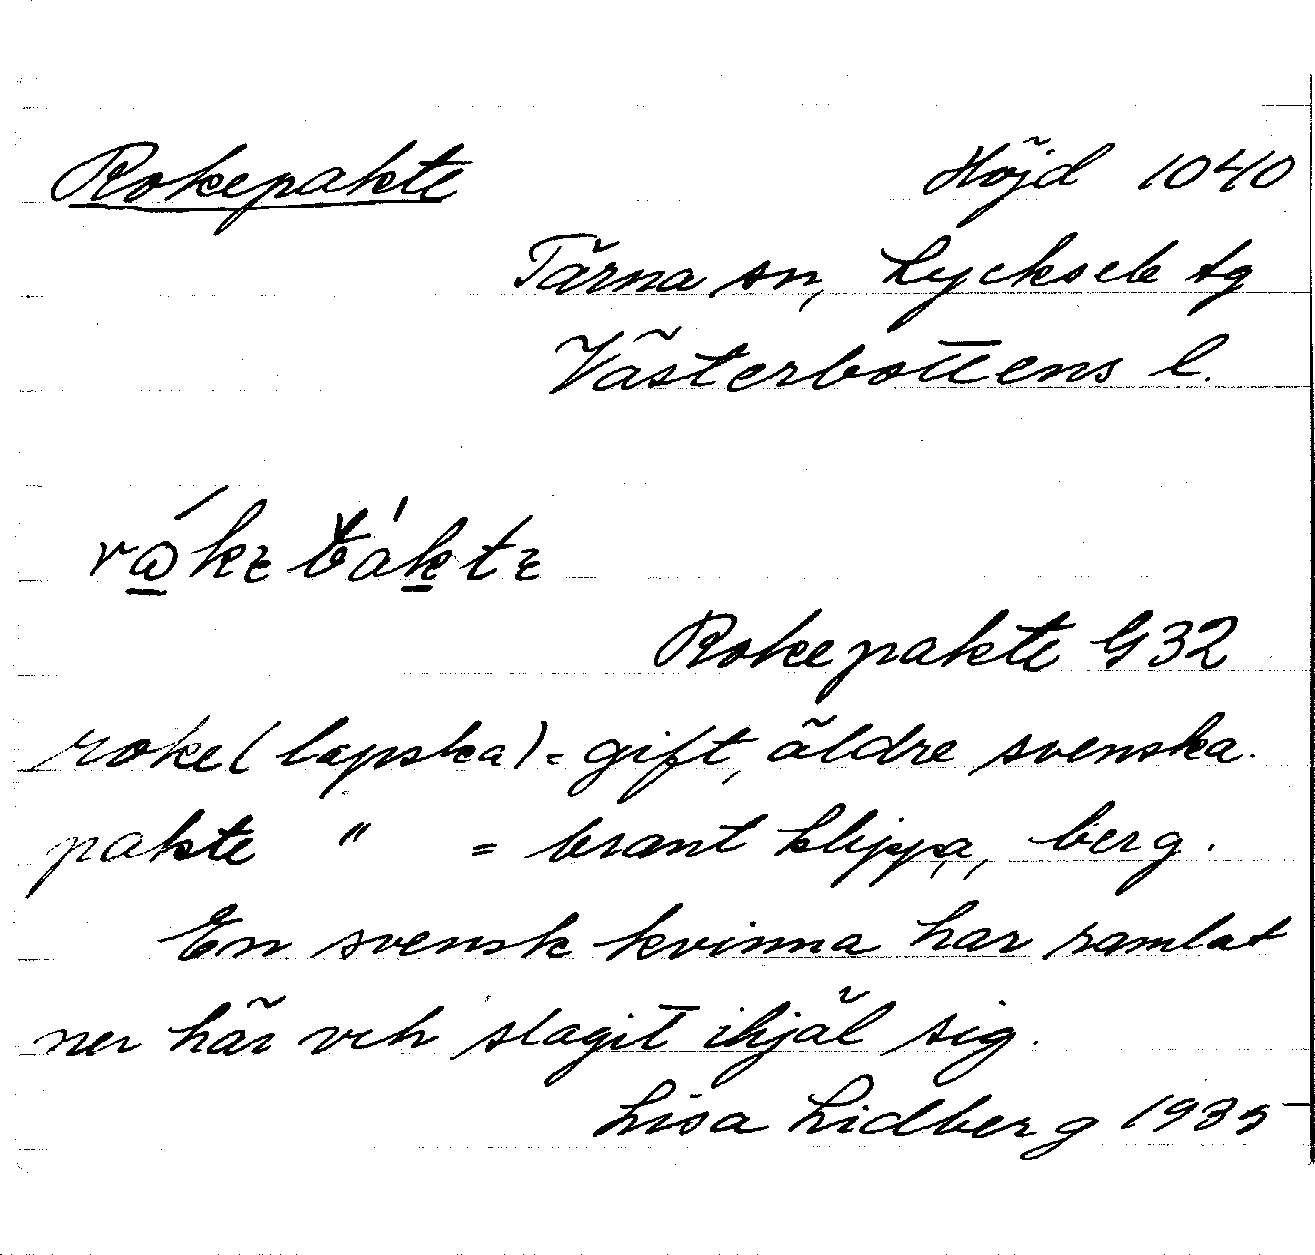 Rokepakte Höjd 1040
Tärna sn, Lycksele tg
Västerbottens l.
Rokepakte G32
roke (lapska) = gift, äldre svenska.
pakte " = brant klippa, berg.
En svensk kvinna har ramlat
ner här och slagit ihjäl sig.
Lisa Lidberg 1935